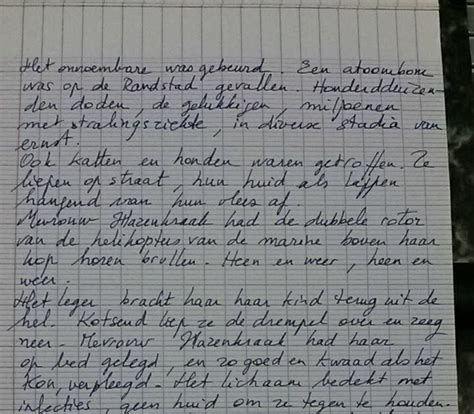 Het onnoembare was gebeurd. Een atoombom
was op de Randstad gevallen. Honderdduizen-
den doden, de gelukkigen, miljoenen
met stralingsziekte, in diverse stadia van
ernst.
Ook katten en honden waren getroffen. Ze
liepen op straat, hun huid als lappen
hangend van hun vlees af.
Mevrouw Hazenkraak had de dubbele rotor
van de helikopters van de marine boven haar
kop horen brullen. Heen en weer, heen en
weer.
Het leger bracht haar haar kind terug uit de
hel. Kotsend liep ze de drempel over en zeeg
neer. Mevrouw Hazenkraak had haar
op bed gelegd, en zo goed en kwaad als het
kon, verpleegd. Het lichaam bedekt met
infecties, geen huid om ze tegen te houden.